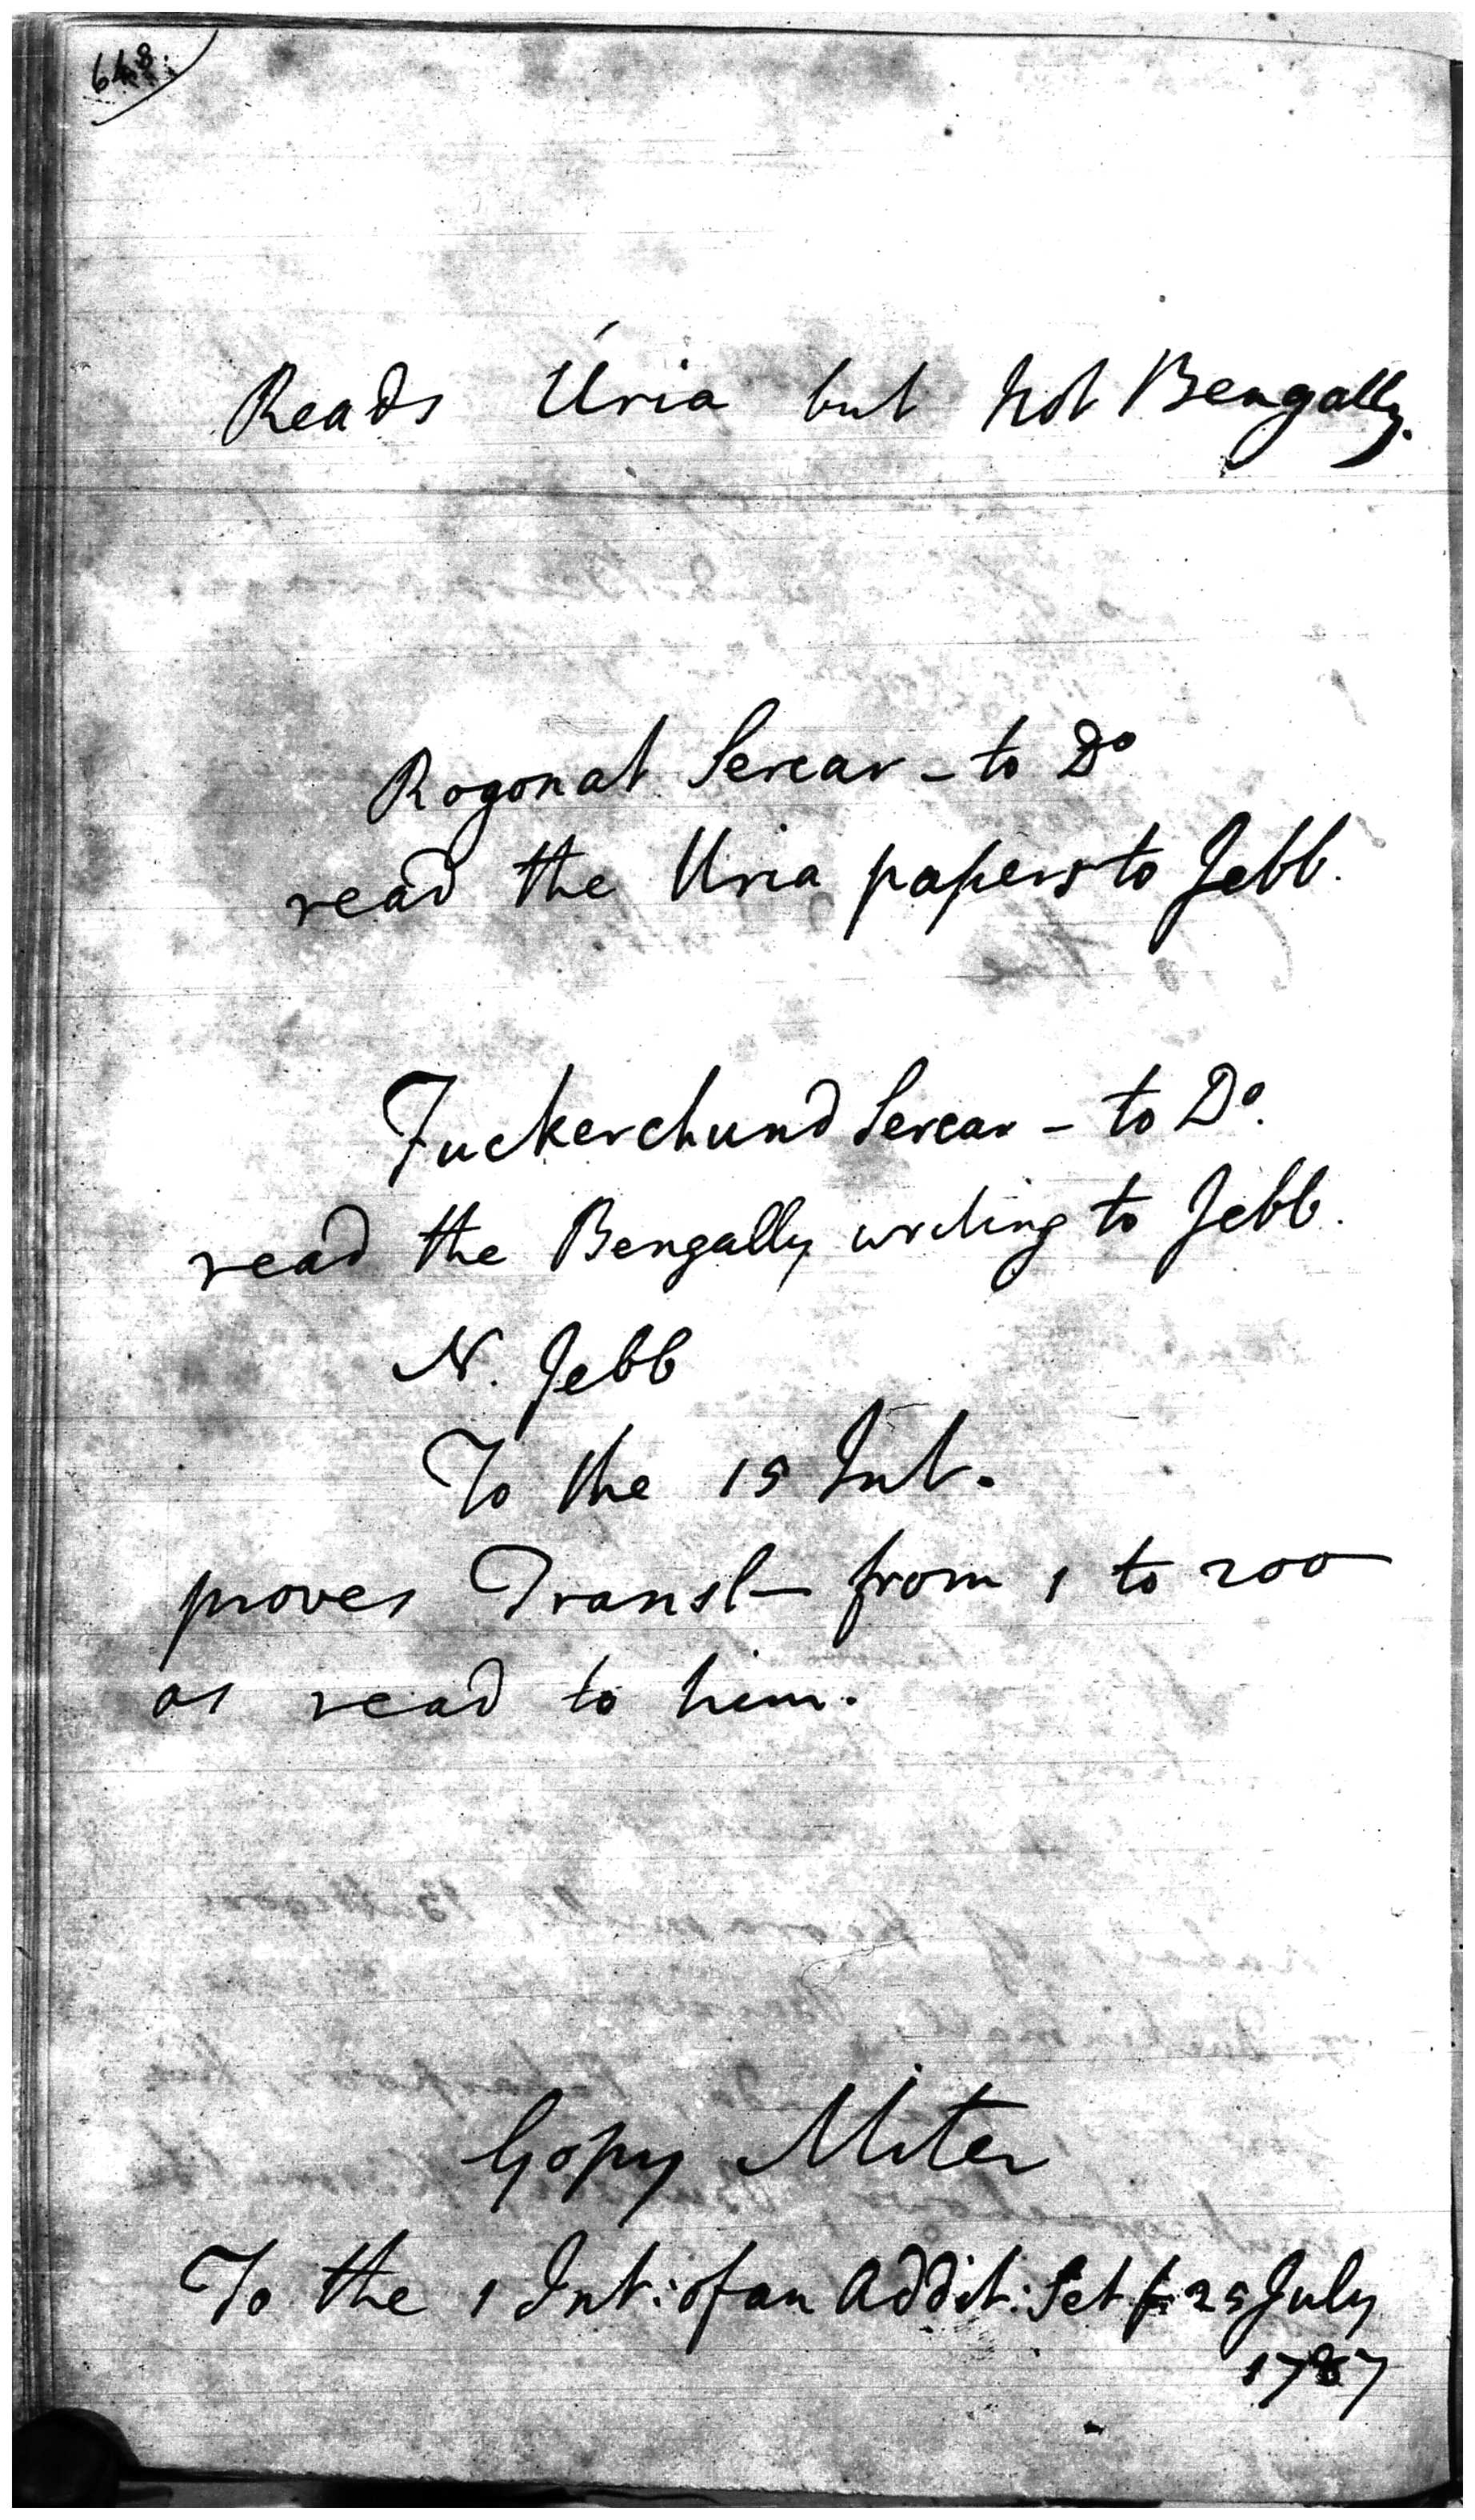 648.
Reads Uria but not Bengally.
Rogonat Sercar - to Do
read the Uria papers to Jebb.
Tuckerchund Sercar - to Do.
read the Bengally writing to Jebb.
N. Jebb
To the 15 Int.
proves Transl- from 1 to 200
as read to him.
Gopy Miter
To the 1 Int: of an Addit: Set 25 July
1787